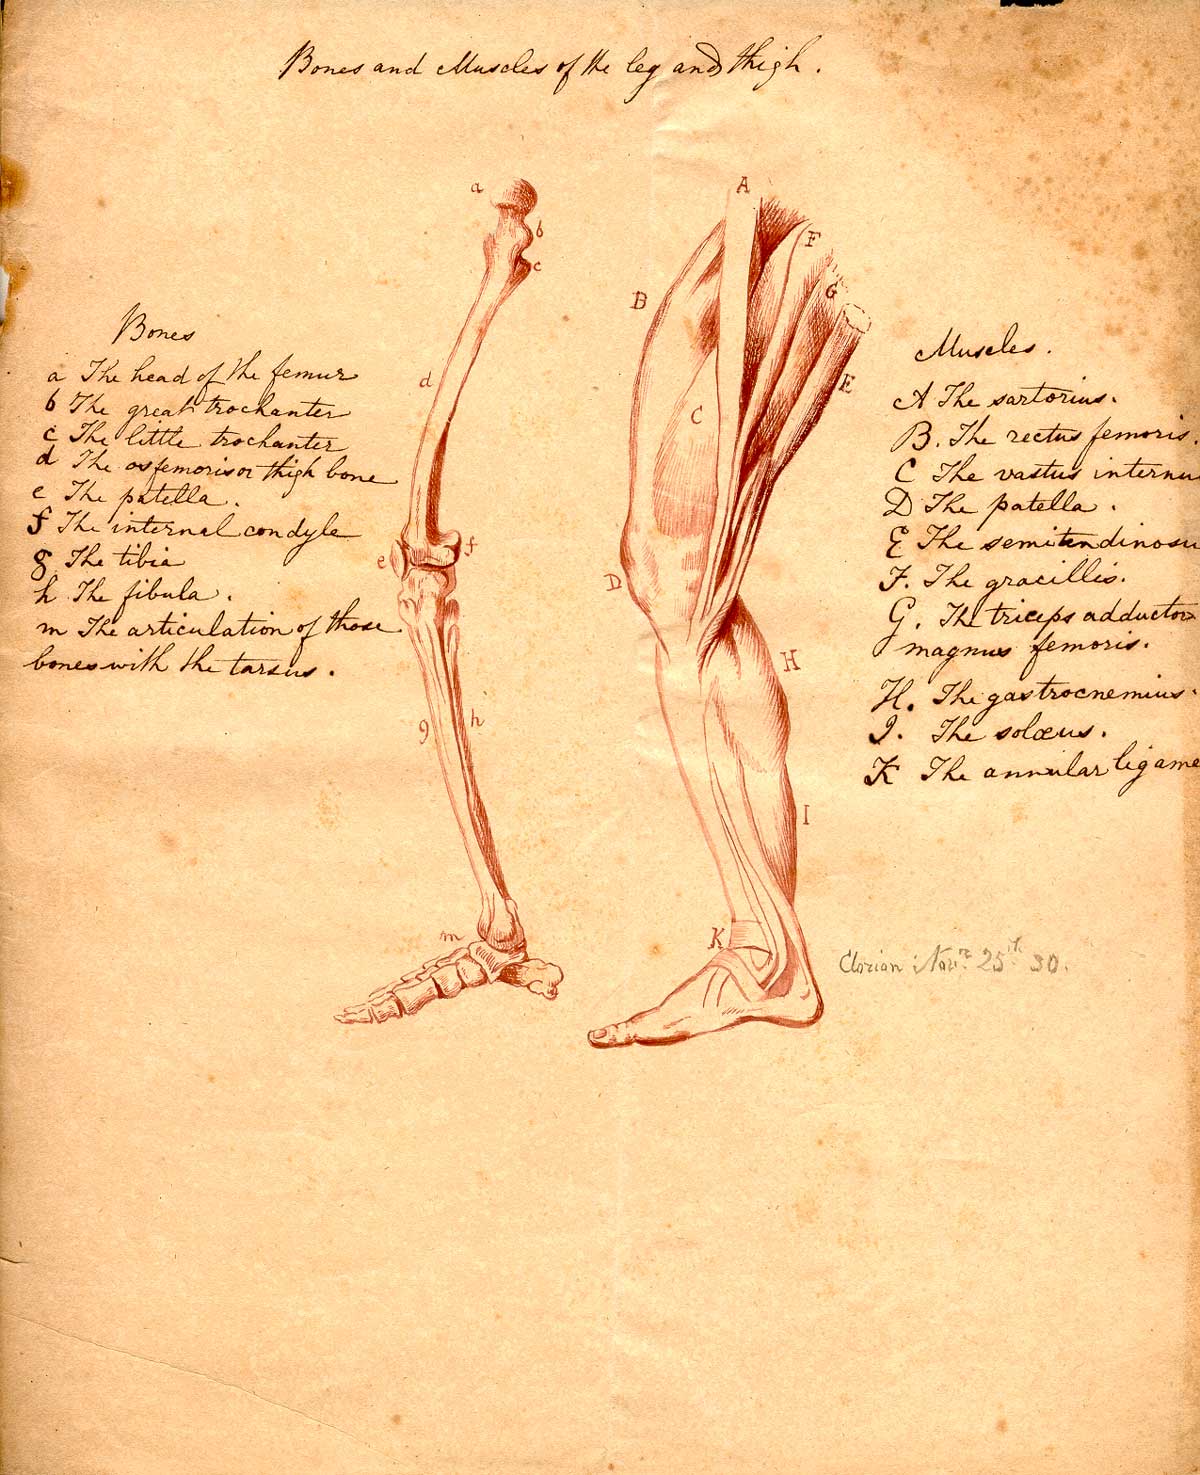 Bones and Muscles of the leg and thigh.
Bones
a The head of the femur
b The great trochanter
c The little trochanter
d The os femoris or thigh bone
e The patella.
f The internal condyle
g The tibia
h The fibula.
m The articulation of those
bones with the tarsus.
a
b
c
d
e
f
g
h
m
A
B
C
D
E
F
G
H
I
K
Muscles.
A The sartorius.
B. The rectus femoris.
C The vastus internu
D The patella.
E The semitendinosu
F. The gracillis.
G. The triceps adductor
magnus femoris.
H. The gastrocnemius.
I. The solæus.
K The annular ligame
Novr. 25th 30.